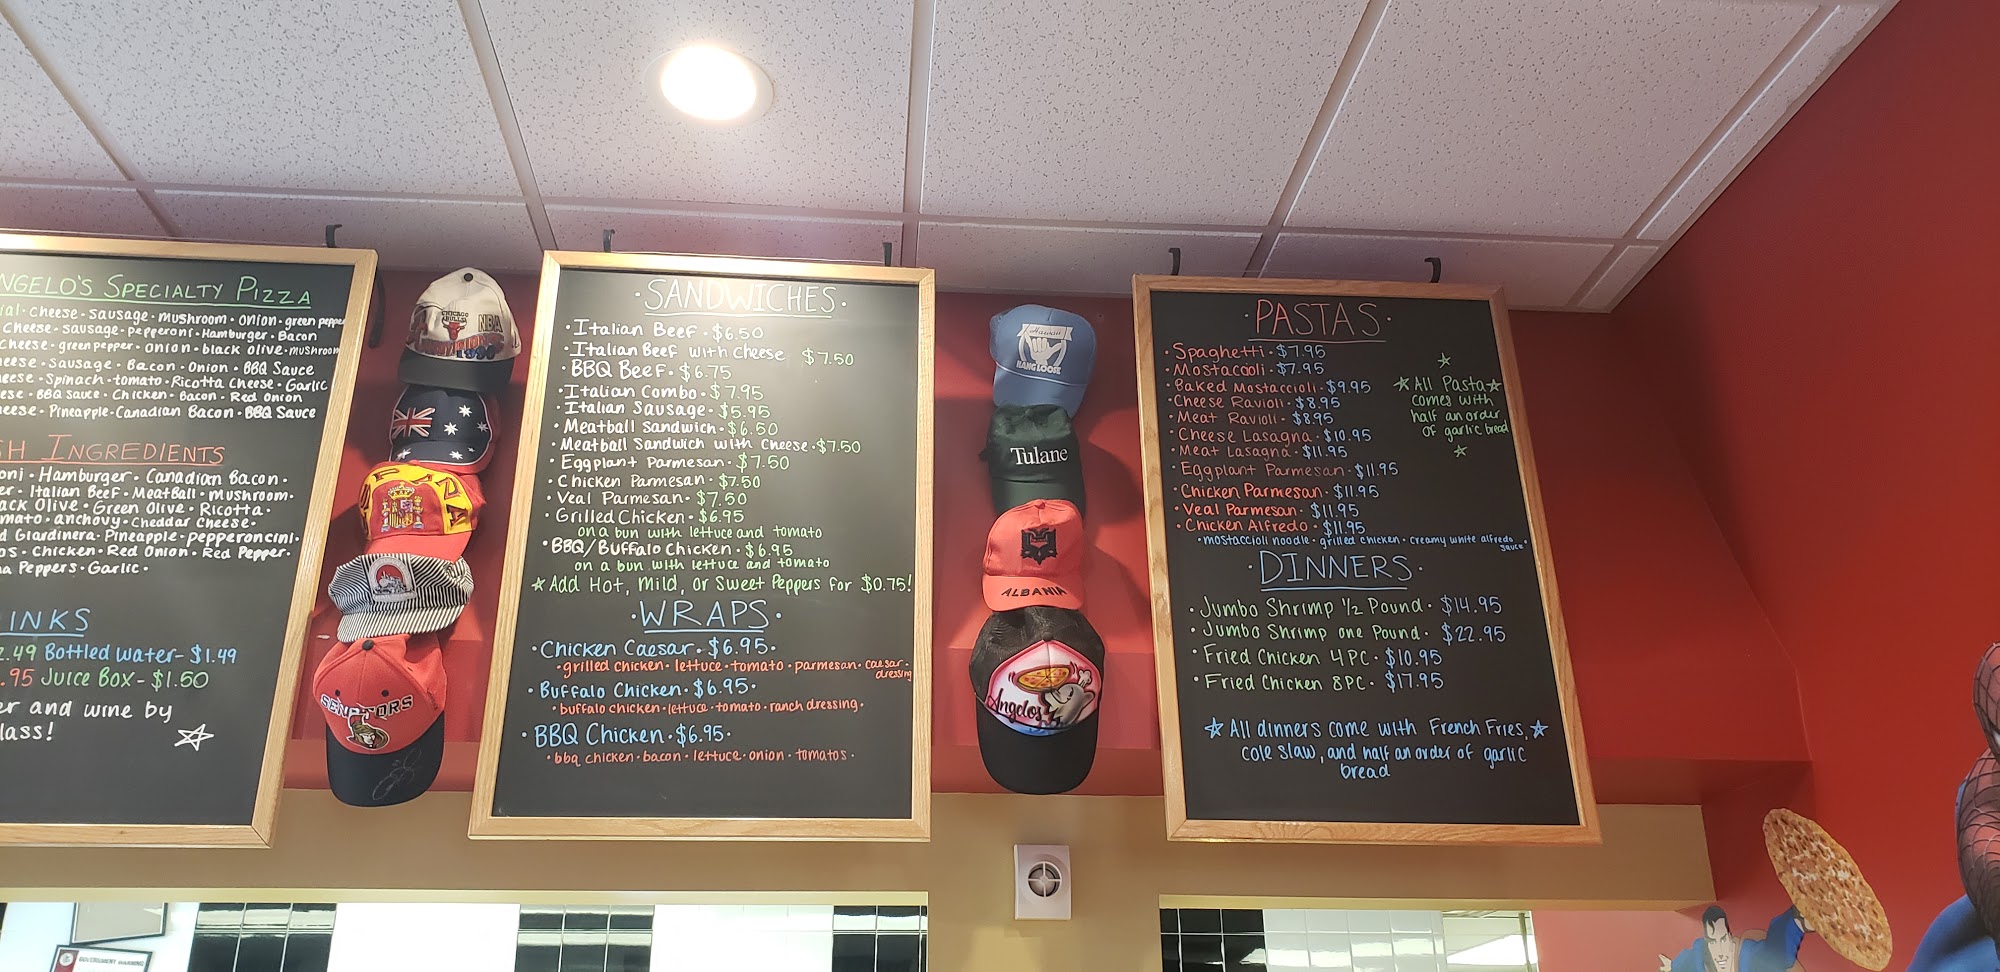 NGELO'S SPECIALTY PIZZA
ial · Cheese · Sausage · Mushroom · Onion · green pepper
Cheese · Sausage · Pepperoni · Hamburger · Bacon
Cheese · green pepper · Onion · black olive · mushroom
heese · Sausage · Bacon · Onion · BBQ Sauce
eese · Spinach · tomato · Ricotta Cheese · Garlic
ese · BBQ Sauce · Chicken · Bacon · Red Onion
heese · Pineapple · Canadian Bacon · BBQ Sauce
SH INGREDIENTS
oni · Hamburger · Canadian Bacon ·
er · Italian Beef · MeatBall · Mushroom ·
ack Olive · Green Olive · Ricotta ·
mato · anchovy · Cheddar Cheese ·
d Giardinera · Pineapple · pepperoncini ·
os · Chicken · Red Onion · Red Pepper ·
na Peppers · Garlic ·
INKS
2.49 Bottled Water - $1.49
.95 Juice Box - $1.50
er and wine by
lass!
CHICAGO
BULLS
NBA
SENATORS
· SANDWICHES ·
· Italian Beef · $6.50
· Italian Beef with Cheese $7.50
· BBQ Beef · $6.75
· Italian Combo · $7.95
· Italian Sausage · $5.95
· Meatball Sandwich · $6.50
· Meatball Sandwich with Cheese · $7.50
· Eggplant Parmesan · $7.50
· Chicken Parmesan · $7.50
· Veal Parmesan · $7.50
· Grilled Chicken · $6.95
on a bun with lettuce and tomato
· BBQ/Buffalo Chicken · $6.95
on a bun with lettuce and tomato
☆ Add Hot, Mild, or Sweet Peppers for $0.75!
· WRAPS ·
· Chicken Caesar · $6.95 ·
· grilled chicken · lettuce · tomato · parmesan · caesar ·
dressing
· Buffalo Chicken · $6.95 ·
· buffalo chicken · lettuce · tomato · ranch dressing ·
· BBQ Chicken · $6.95 ·
· bbq chicken · bacon · lettuce · onion · tomatos ·
Hawaii
HANG LOOSE
Tulane
ALBANIA
Angelos
· PASTAS ·
· Spaghetti · $7.95
· Mostaccioli · $7.95
· Baked Mostaccioli · $9.95
· Cheese Ravioli · $8.95
· Meat Ravioli · $8.95
· Cheese Lasagna · $10.95
· Meat Lasagna · $11.95
· Eggplant Parmesan · $11.95
· Chicken Parmesan · $11.95
· Veal Parmesan · $11.95
· Chicken Alfredo · $11.95
· mostaccioli noodle · grilled chicken · creamy white alfredo
sauce ·
☆ All Pasta ☆
comes with
half an order
of garlic bread
· DINNERS ·
· Jumbo Shrimp 1/2 Pound · $14.95
· Jumbo Shrimp one Pound · $22.95
· Fried Chicken 4 PC · $10.95
· Fried Chicken 8 PC · $17.95
☆ All dinners come with French Fries, ☆
cole slaw, and half an order of garlic
bread
GOVERNMENT WARNING